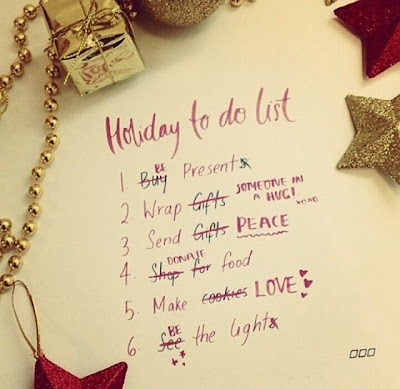 Holiday to do list
BE
1. Buy Presents
2. Wrap Gifts SOMEONE IN A HUG! XOXO
3. Send Gifts PEACE
DONATE
4. Shop for food
5. Make cookies LOVE
BE
6. See the lights